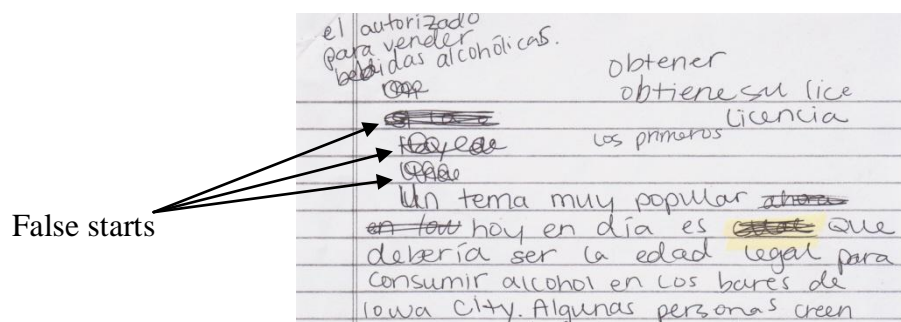 el autorizado
para vender
bebidas alcohólicas.
obtener
obtiene su lice
licencia
los primeros
False starts
Un tema muy popular ahora
en hoy en día es que
debería ser la edad legal para
consumir alcohol en los bares de
Iowa City. Algunas personas creen